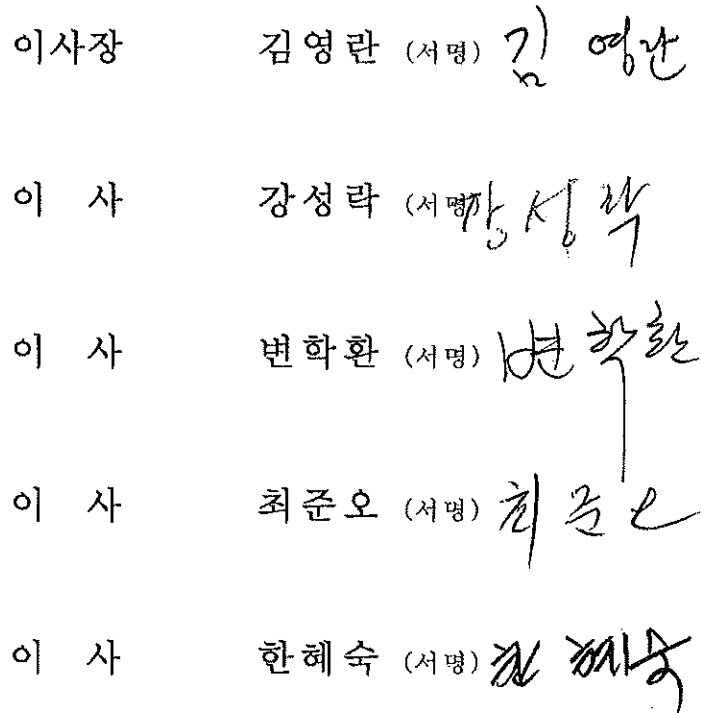 이사장 김영란 (서명) 김 영란
이 사 강성락 (서명) 강성락
이 사 변학환 (서명) 변학환
이 사 최준오 (서명) 최준오
이 사 한혜숙 (서명) 한혜숙